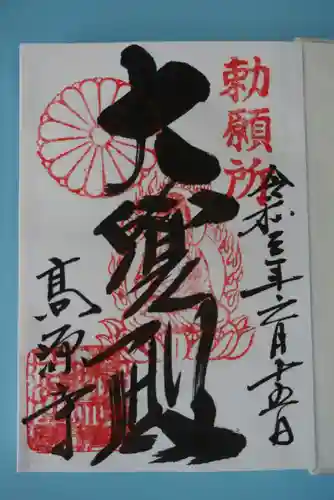 勅願所
令和三年六月十五日
大寳殿
髙源寺